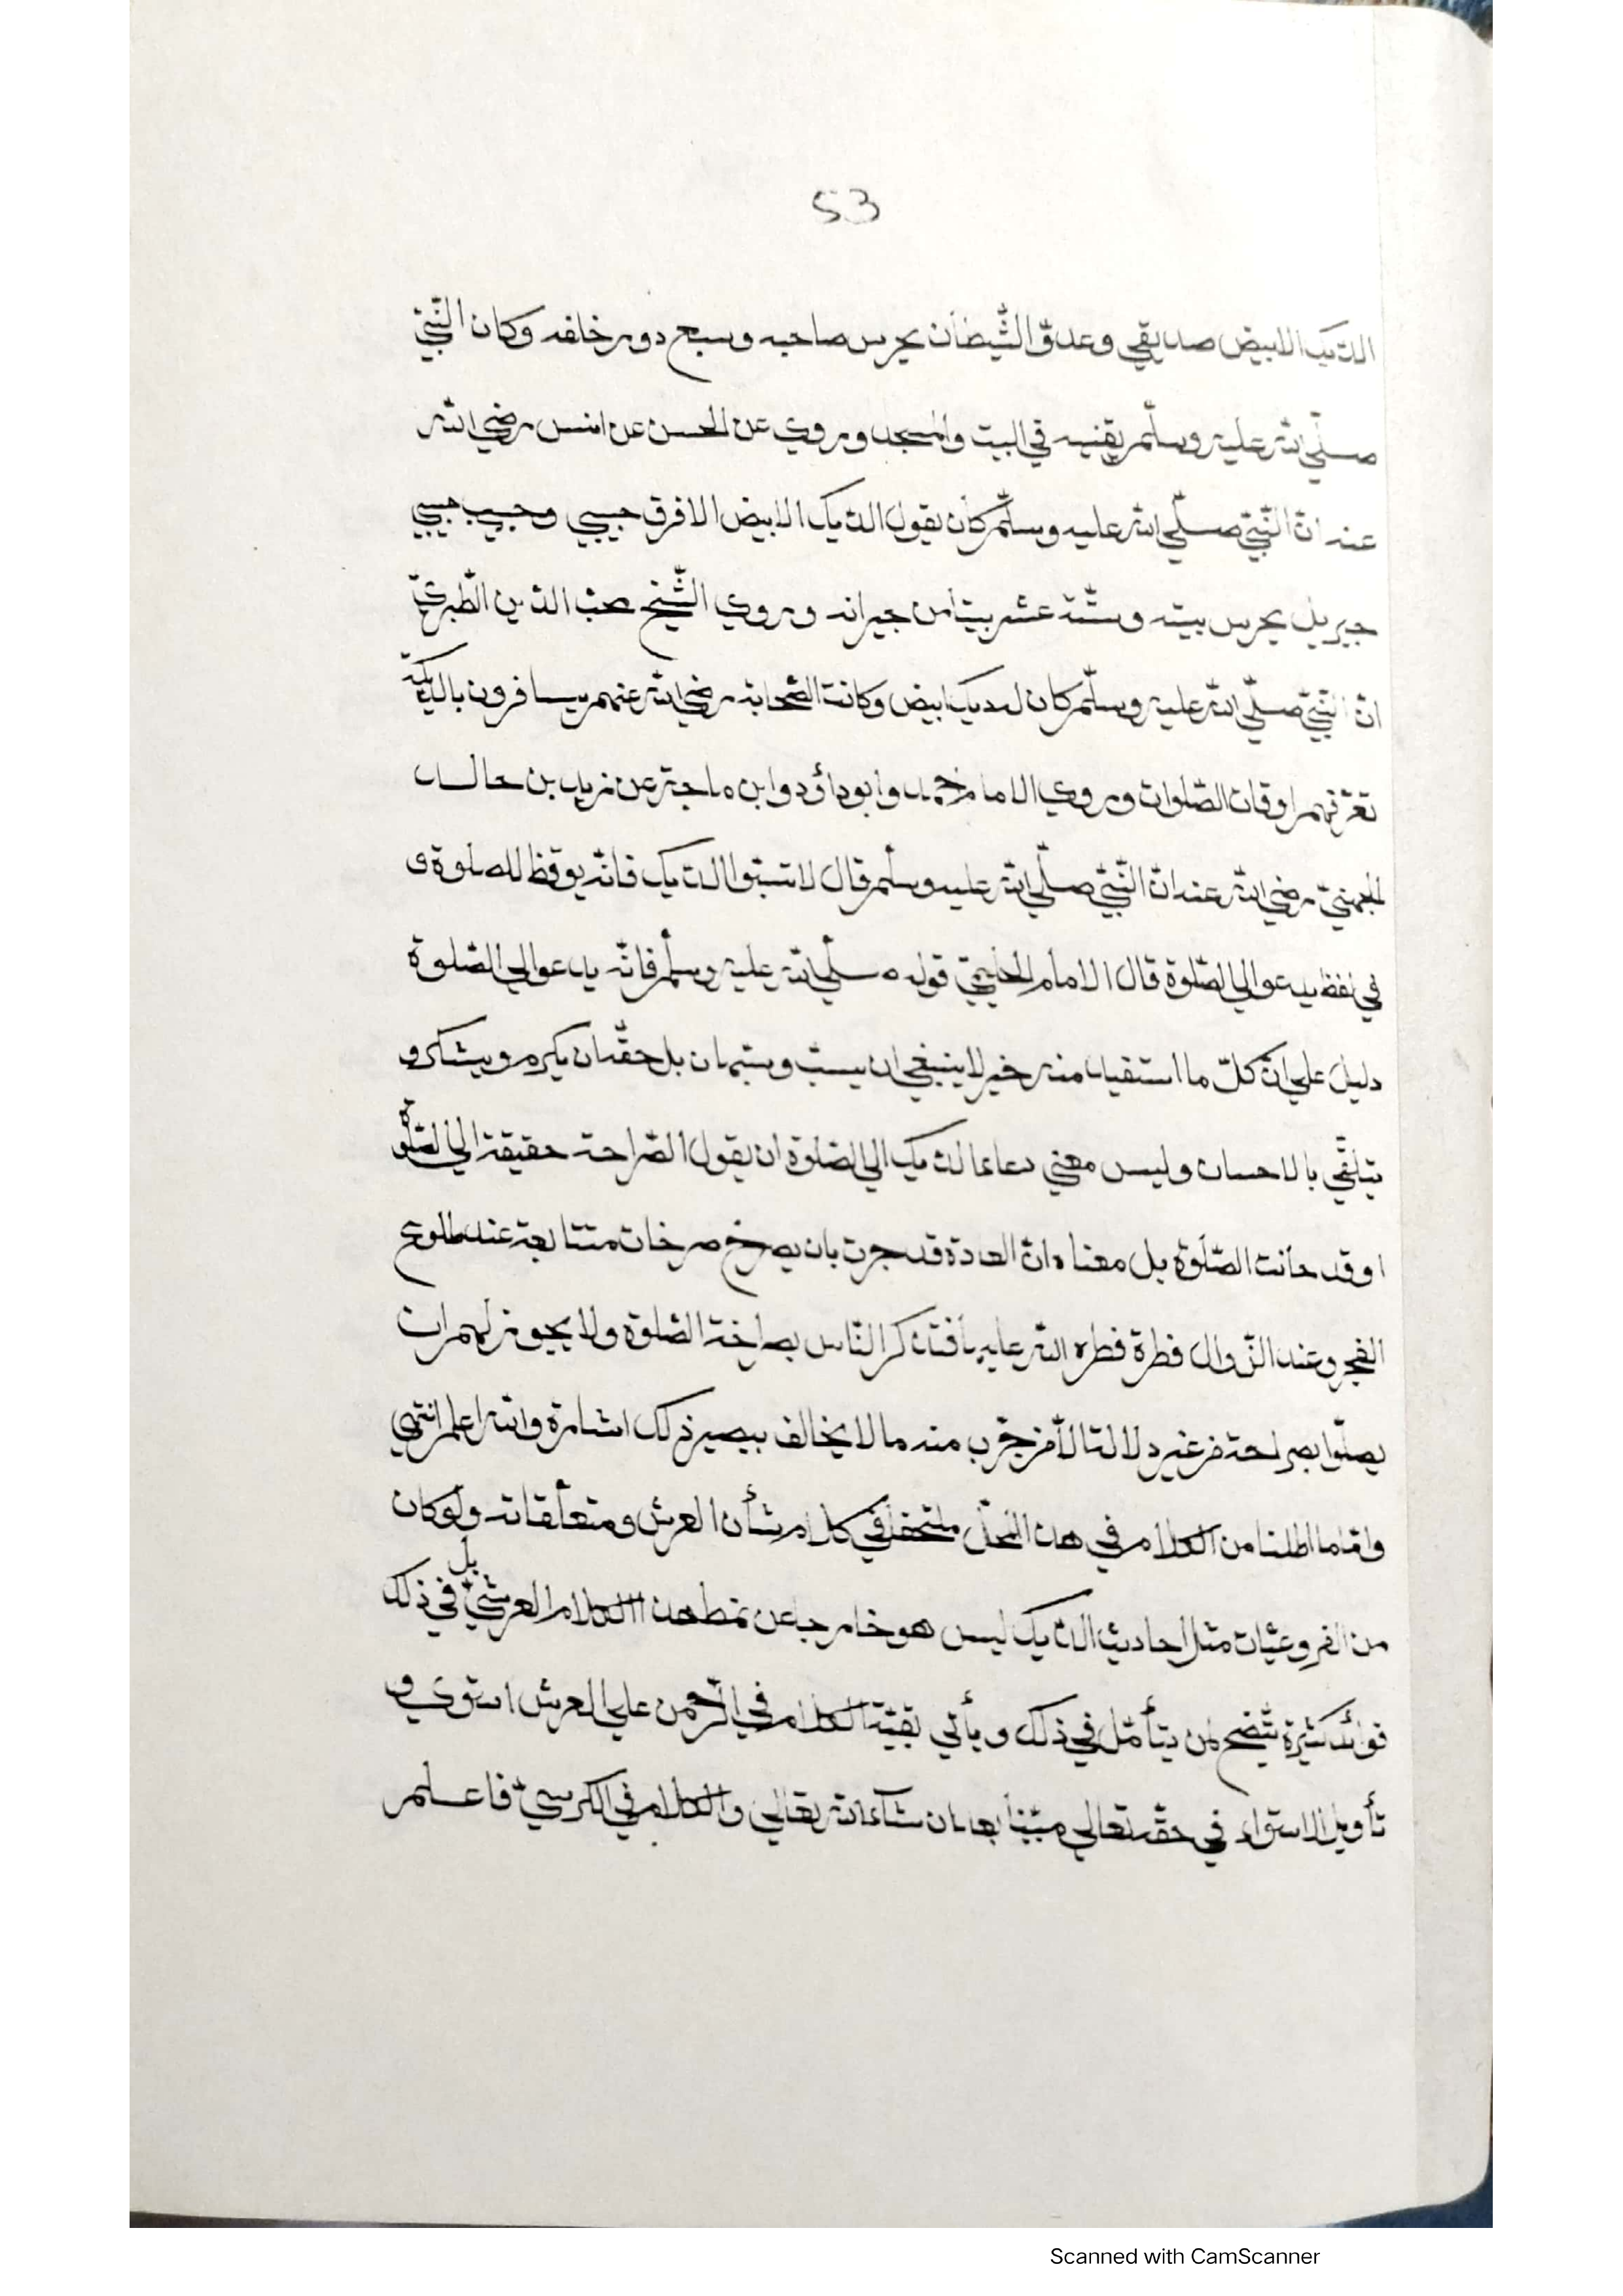 53
الديك الابيض صديقي وعدوّ الشّيطان يحرس صاحبه وسبع دور خلفه وكان النّبيّ
صلّي الله عليه وسلّم يقنيه في البيت والمسجد وروي عن الحسن عن انس رضي الله
عنه انّ النّبيّ صلّي الله عليه وسلّم كان يقول الديك الابيض الافرق حبيبي وحبيب حبيبي
جبريل يحرس بيته وستّة عشر بيتا من جيرانه وروي الشّيخ محبّ الدّين الطّبريّ
انّ النّبيّ صلّي الله عليه وسلّم كان له ديك ابيض وكانت الصّحابة رضي الله عنهم يسافرون بالديكة
تعرّفهم اوقات الصّلوات وروي الامام احمد وابو داؤد وابن ماجة عن زيد بن خالد
الجهنيّ رضي الله عنه انّ النّبيّ صلّي الله عليه وسلّم قال لا تسبّوا الديك فانّه يوقظ للصلوة و
في لفظ يدعوا الي الصّلوة قال الامام الحليميّ قوله صلّي الله عليه وسلّم فانّه يدعوا الي الصّلوة
دليل علي انّ كلّ ما استفيد منه خير لا ينبغي ان يسبّ ويستهان بل حقّه ان يكرم ويشكر و
يتلقّي بالاحسان وليس معني دعاء الديك الي الصّلوة ان يقول الصّراحة حقيقة الي الصّلوة
او قد حانت الصّلوة بل معناه انّ العادة قد جرت بان يصرخ صرخات متتابعة عند طلوع
الفجر وعند الزّوال فطرة فطره الله عليها فتذكر النّاس بصراخه الصّلوة ولا يجوز لهم ان
يصلّوا بصراحة من غير دلالة الّا من جرّب منه ما لا يخالف بيصير ذلك اشارة والله اعلم انتهي
وانّما اطلنا من الكلام في هذا المحلّ في كلام شأن العرش ومتعلّقاته ولو كان
من الفروعيّات مثل احاديث الديك ليس هو خارجا عن نمط هذا الكلام العرشيّ بل في ذلك
فوائد كثيرة تتّضح لمن يتأمّل في ذلك ويأتي بقيّة الكلام في الرّحمن علي العرش استوي و
تأويل الاستواء في حقّه تعالي مبيّنا بعد ان شاء الله تعالي والكلام في الكرسيّ فاعلم
Scanned with CamScanner